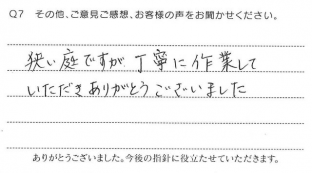 Q7 その他、ご意見ご感想、お客様の声をお聞かせください。
狭い庭ですが丁寧に作業して
いただきありがとうございました
ありがとうございました。今後の指針に役立たせていただきます。